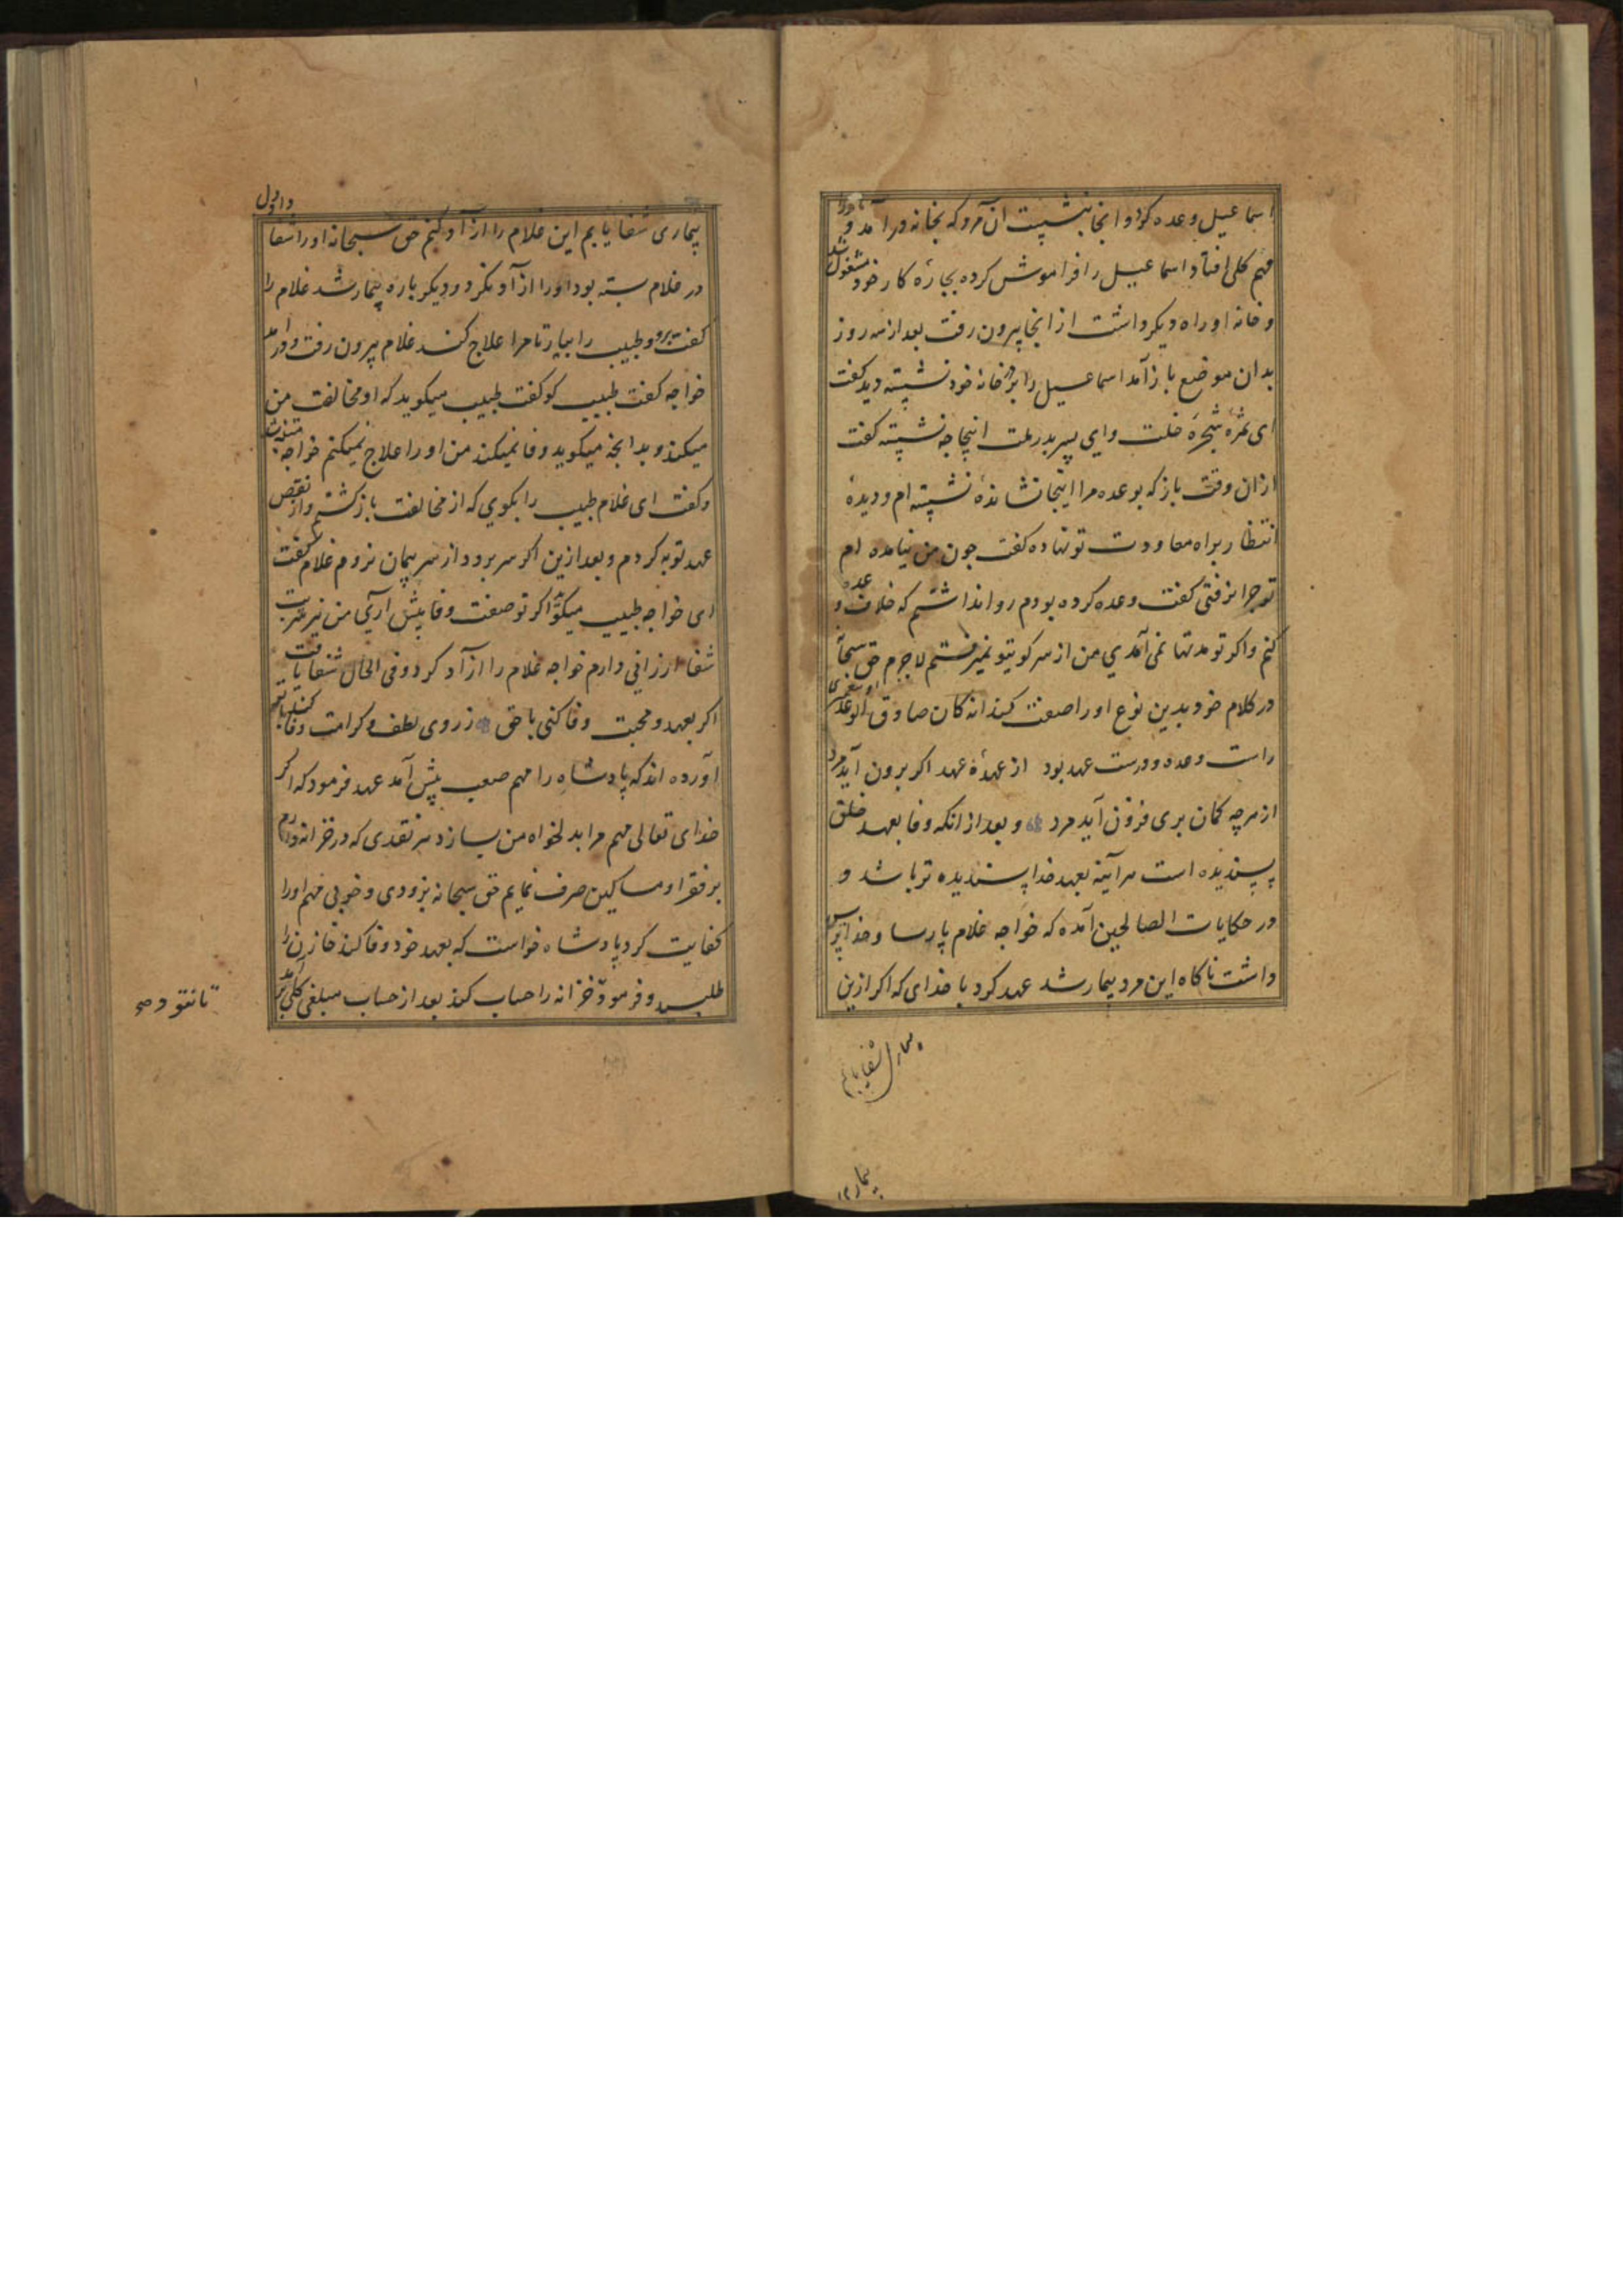 اسماعیل وعده کرد و انجا بنشیست ان مرد که بخانه در آمد و او را
مهم کلی افتاد و اسماعیل را فراموش کرده بجارهٔ کار خود مشغول شد
و خانه او راه دیکر داشت از انجا بیرون رفت بعد از سه روز
بدان موضع باز آمد اسماعیل را بر در خانهٔ خود نشسته دید کفت
ای ثمرهٔ شجرهٔ خلت و ای پسر پدر ملت اینجا جه نشستهٔ کفت
ازان وقت باز که بوعده مرا اینجا نشاندهٔ نشسته ام و دیدهٔ
انتظار براه معاودت تو نهاده کفت جون من نیامده ام
تو جرا نرفتی کفت وعده کرده بودم روا نداشتم که خلاف وعده
کنم و اکر تو مدتها نمی آمدی من از سر کوی تو نمیرفتم لاجرم حق سبحانه
در کلام خود بدین نوع او را صفت کند انه کان صادق الوعد
راست وعده و درست عهد بود از عهدهٔ عهد اکر برون آید مرد
از هرچه کمان بری فزون آید مرد و بعد از انکه وفا بعهد خلق
پسندیده است هر آینه بعهد خدا پسندیده تر باشد و
در حکایات الصالحین آمده که خواجه غلام پارسا و خدا ترس
داشت ناکاه این مرد بیمار شد عهد کرد با خدای که اکر ازین
بیماری شفا یابم
بیماری
بیماری شفا یابم این غلام را ازاد کنم حق سبحانه او را شفا داد و دل
در غلام بسته بود او را ازاد نکرد و دیکر باره بیمار شد غلام را
کفت برو و طبیب را بیار تا مرا علاج کند غلام بیرون رفت و در آمد
خواجه کفت طبیب کو کفت طبیب میکوید که او مخالفت من
میکند و بدانجه میکوید وفا نمیکند من او را علاج نمیکنم خواجه متنبه شد
و کفت ای غلام طبیب را بکوی که از مخالفت باز کشتم و از نقض
عهد توبه کردم و بعد ازین اکر سر برود از سر پیمان نروم غلام کفت
ای خواجه طبیب میکوید اکر تو صفت وفا پیش آری من نیز شربت
شفا ارزانی دارم خواجه غلام را ازاد کرد و فی الحال شفا یافت
اکر بعهد و محبت وفا کنی با حق ز روی لطف و کرامت وفا کند با تو
آورده اند که پادشاه را مهم صعب پیش آمد عهد فرمود که اکر
خدای تعالی مهم مرا بدلخواه من بسازد هر نقدی که در خزانه دارم
بر فقرا و مساکین صرف نمایم حق سبحانه بزودی و خوبی مهم او را
کفایت کرد پادشاه خواست که بعهد خود وفا کند خازن را
طلبید و فرمود تا خزانه را حساب کند بعد از حساب مبلغی کلی بر آمد